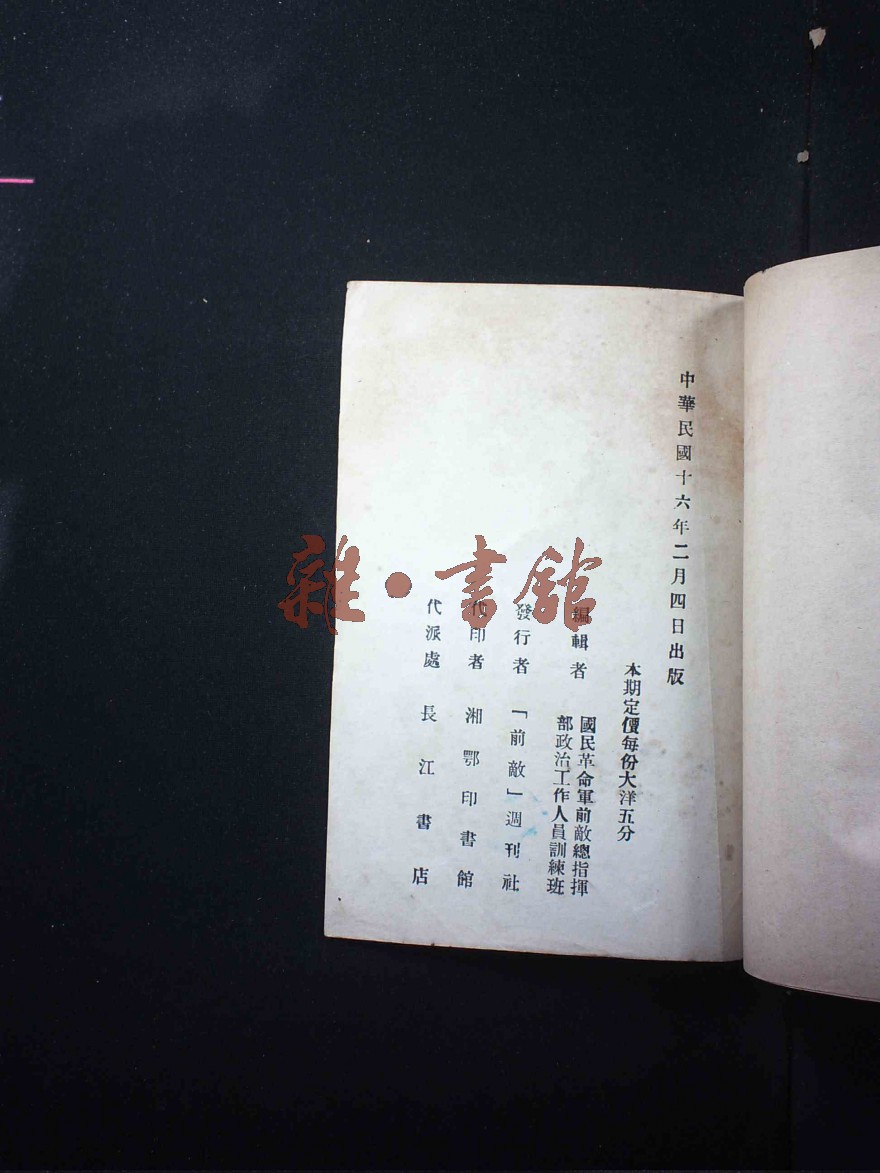 中華民國十六年二月四日出版
本期定價每份大洋五分
編輯者 國民革命軍前敵總指揮
部政治工作人員訓練班
發行者 「前敵」週刊社
代印者 湘鄂印書館
代派處 長江書店
雜·書館